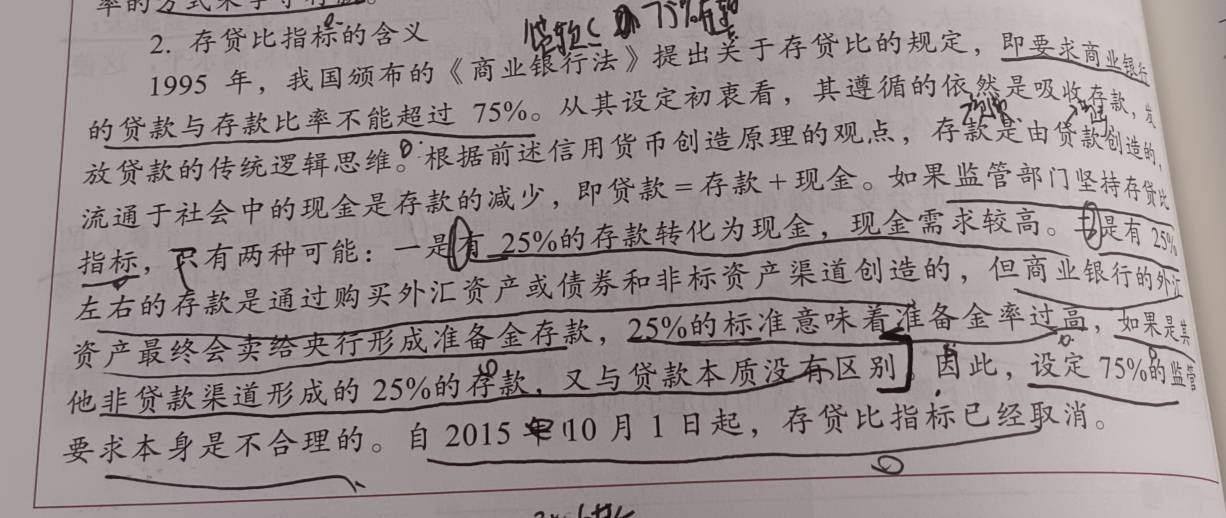 率的方式来
2. 存贷比指标的含义
贷款≤ 75%存款
1995 年，我国颁布的《商业银行法》提出关于存贷比的规定，即要求商业银行
的贷款与存款比率不能超过 75%。从其设定初衷看，其遵循的依然是吸收存款，发
放贷款的传统逻辑思维。根据前述信用货币创造原理的观点，存款是由贷款创造的，
流通于社会中的现金是存款的减少，即贷款＝存款＋现金。如果监管部门坚持存贷比
指标，只有两种可能：一是有 25%的存款转化为现金，现金需求较高。二是有 25%
左右的存款是通过购买外汇资产或债券和非标资产渠道创造的，但商业银行的外汇
资产最终会卖给央行形成准备金存款，25%的标准意味着准备金率过高，如果是其
他非贷款渠道形成的 25%的存款，又与贷款本质没有区别。因此，设定 75%的监管
要求本身是不合理的。自 2015 年 10 月 1 日起，存贷比指标已经取消。